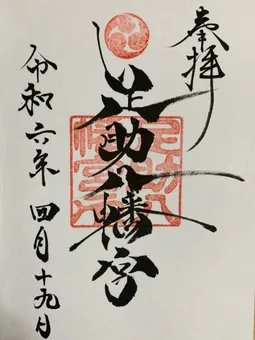 奉拝
足助八幡宮
令和六年四月十九日